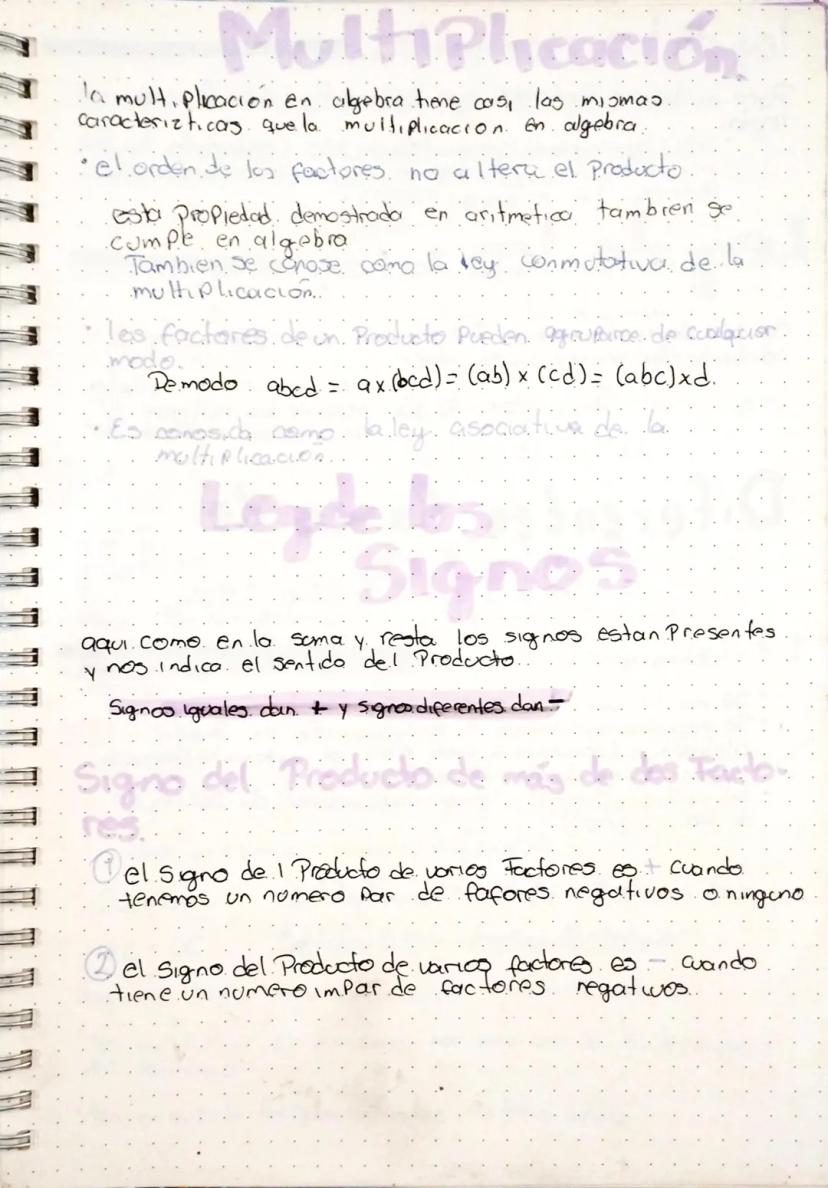 Multiplicación
la multiplicación en algebra tiene casi las mismas
caracterizticas que la multiplicacion en algebra.
• el orden de los factores no altera el Producto
esta Propiedad demostrada en aritmetica tambien se
cumple en algebra
Tambien se conose como la ley conmutativa de la
multiplicación.
• los factores de un Producto Pueden agruparce de cualquier
modo.
De modo abcd = a x (bcd) = (ab) x (cd) = (abc) x d.
• Es conosida como la ley asociativa de la
multiplicación.
Ley de los
Signos
aqui como en la suma y resta los signos estan Presentes
y nos indica el sentido del Producto.
Signos iguales dan + y signos diferentes dan -
Signo del Producto de más de dos Facto-
res.
① el signo del Producto de varios Factores es + cuando
tenemos un numero Par de fafores negativos o ninguno
② el signo del Producto de varios factores es - cuando
tiene un numero impar de factores negativos.